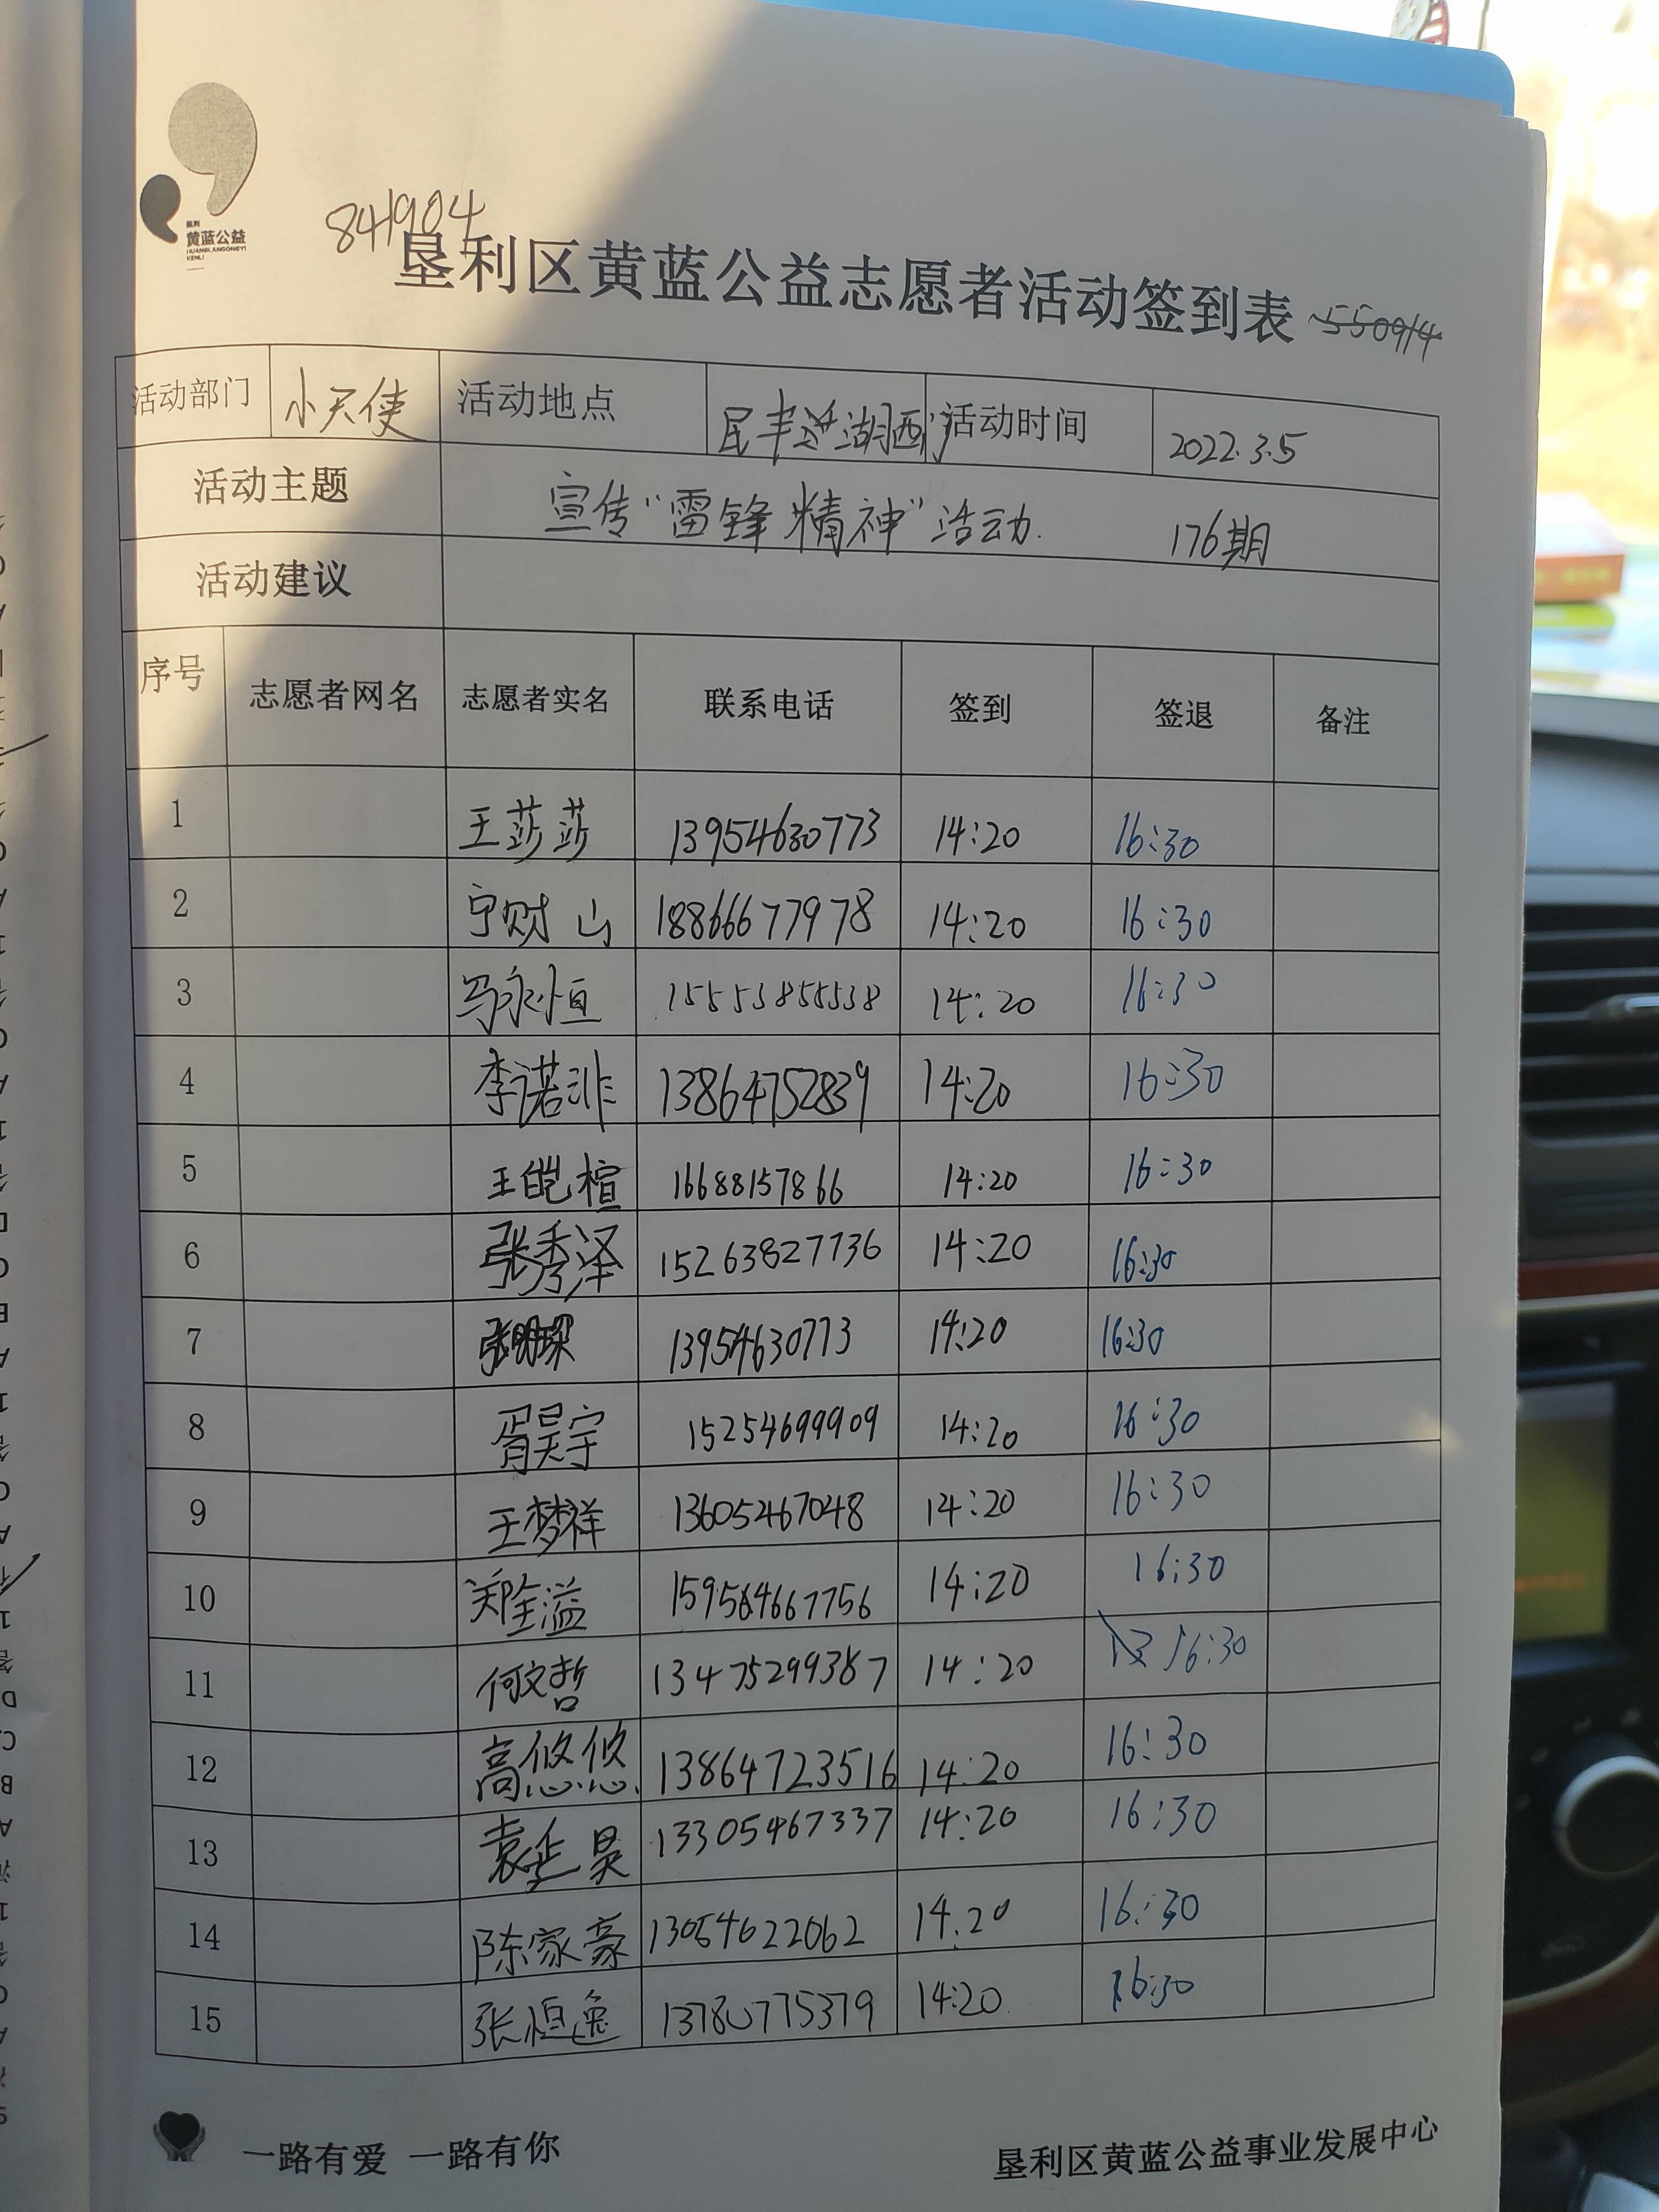 垦利
黄蓝公益
HUANGLANGONGYI
KENLI
841904
垦利区黄蓝公益志愿者活动签到表 550914
活动部门 小天使 活动地点 民丰湖西 活动时间 2022.3.5
活动主题 宣传“雷锋精神”活动. 176期
活动建议
序号 志愿者网名 志愿者实名 联系电话 签到 签退 备注
1 王莎莎 13954630773 14:20 16:30
2 宁财山 18866677978 14:20 16:30
3 马永恒 15553855538 14:20 16:30
4 李诺非 13864752839 14:20 16:30
5 王皑楦 16688157866 14:20 16:30
6 张秀泽 15263827736 14:20 16:30
7 张明琛 13954630773 14:20 16:30
8 胥昊宇 15254699909 14:20 16:30
9 王梦祥 13605467048 14:20 16:30
10 郑全溢 159564667756 14:20 16:30
11 何文哲 13475299387 14:20 16:30
12 高悠悠 13864723516 14:20 16:30
13 袁延昊 13305467337 14:20 16:30
14 陈家豪 13054622062 14:20 16:30
15 张恒逸 13780775379 14:20 16:30
一路有爱 一路有你
垦利区黄蓝公益事业发展中心